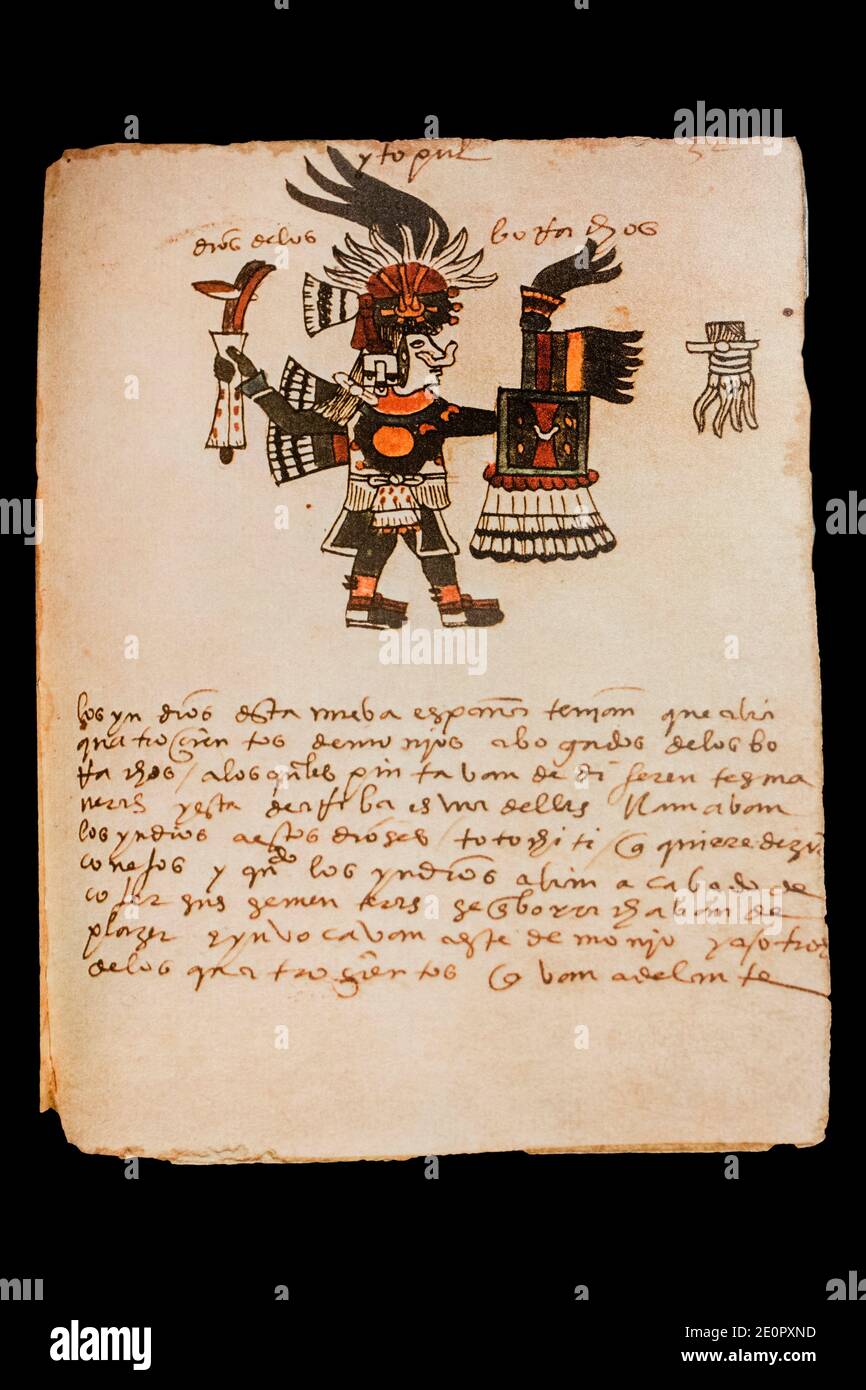 ytopul
dios de los borrachos
los yn dios desta nueba españa tenian que abia
quatrocientos demonjos abogados de los bo
rrachos / a los qles pintavan de diferentes ma
neras y esta de arriba es una dellas llamaban
los yndios a estos dioses / totochiti / q quiere dezir
conejos y qndo los yndios abian acabado de
cojer sus sementeras se enborrachaban de
plazer e ynvocavan a este demonjo y a otros
de los quatrocientos q van adelante
alamy
Image ID: 2E0PXND
www.alamy.com